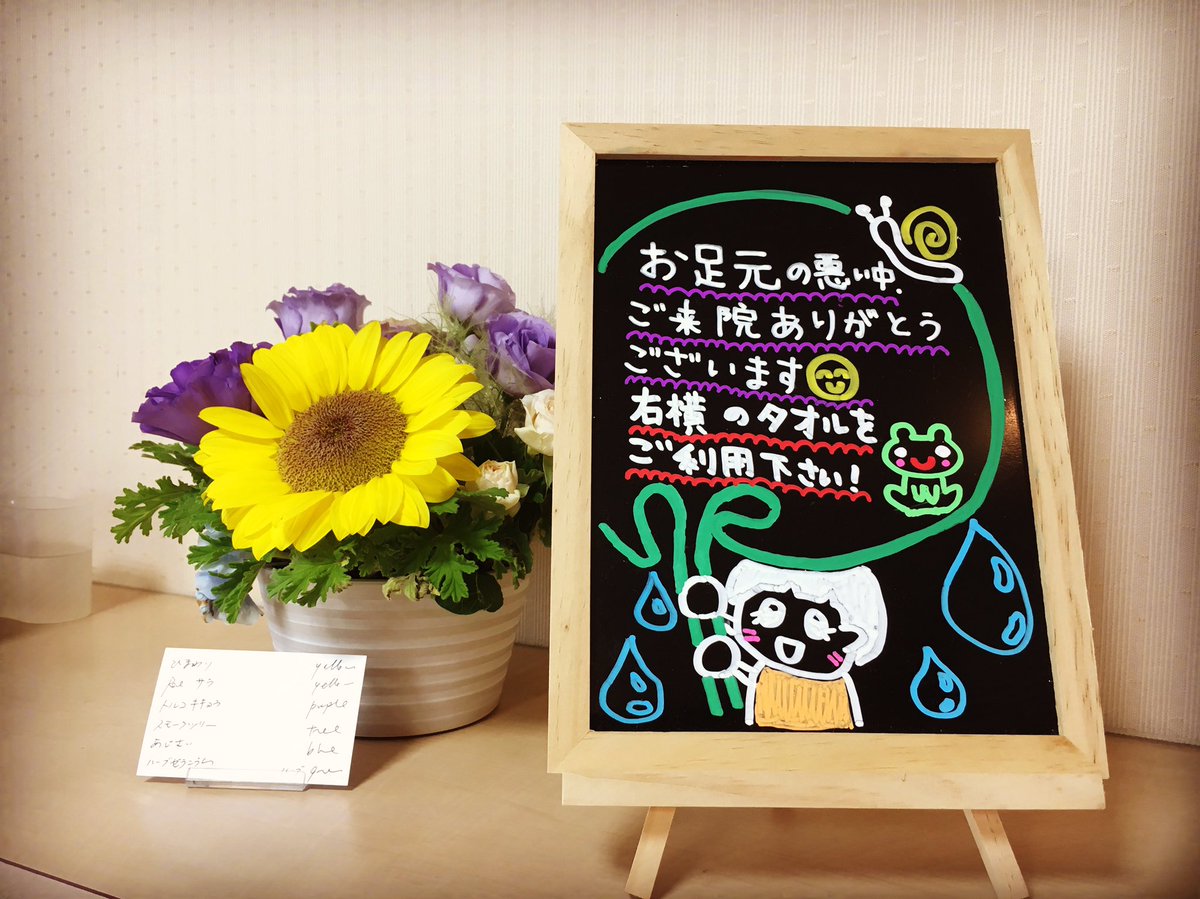 お足元の悪い中、
ご来院ありがとう
ございます
右横のタオルを
ご利用下さい!
ひまわり yellow
サラ yellow
トルコキキョウ purple
スモークツリー tree
あじさい blue
ハーブゼラニウム ハーブ